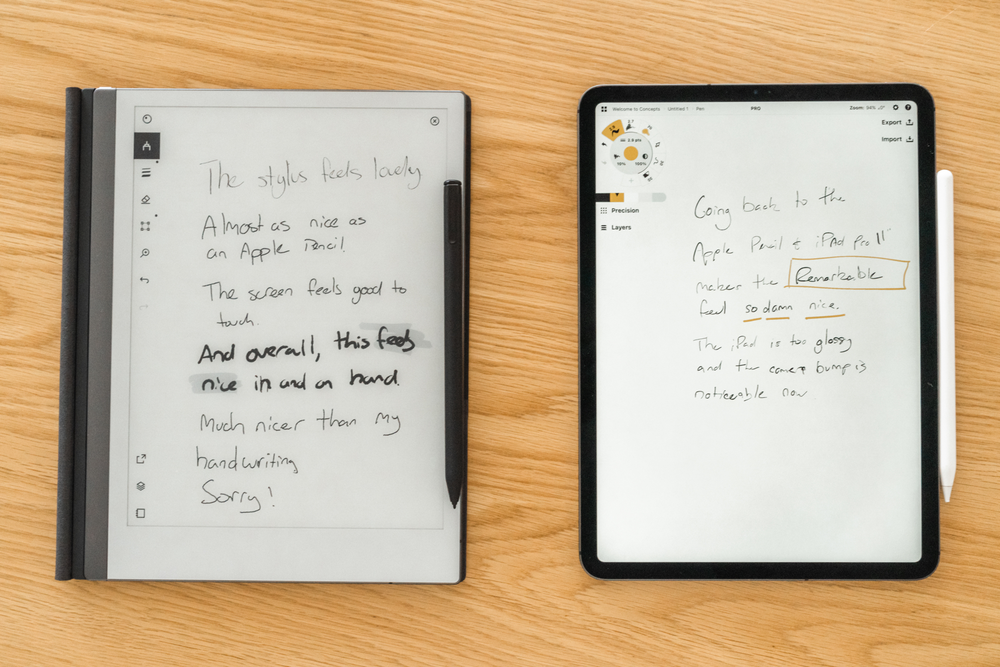 The stylus feels lovely
Almost as nice as
an Apple Pencil.
The screen feels good to
touch.
And overall, this feels
nice in and on hand.
Much nicer than my
handwriting
Sorry!
Welcome to Concepts Untitled 1 Pen
PRO
Zoom: 34%
Export
Import
2.9 pts
100%
Precision
Layers
Going back to the
Apple Pencil & iPad Pro 11"
makes the Remarkable
feel so damn nice.
The iPad is too glossy
and the camera bump is
noticeable now